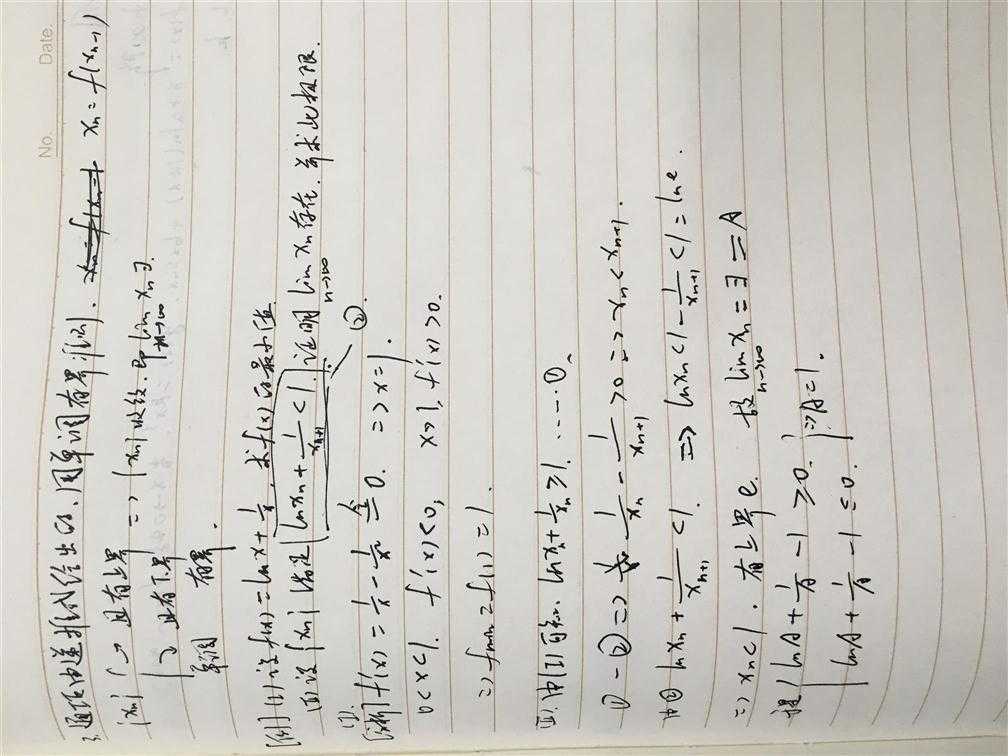 No. Date.
3. 通项由递推式给出的, 用单调有界准则. xₙ = f(xₙ₋₁)
{xₙ} { ↗ 且有上界 => {xₙ} 收敛. 即 lim n→∞ xₙ ∃.
↘ 且有下界
单调 有界.
[例] (I) 设 f(x) = lnx + 1/x, 求 f(x) 的最小值
(II) 设 {xₙ} 满足 lnxₙ + 1/xₙ₊₁ < 1. 证明 lim n→∞ xₙ 存在. 并求此极限.
②.
(I).
[解] f'(x) = 1/x - 1/x² 令= 0. => x = 1.
0<x<1. f'(x)<0, x>1, f'(x)>0.
=> fmin = f(1) = 1.
II). 由(I)可知. lnxₙ + 1/xₙ ≥ 1. ……①.
① - ② => 1/xₙ - 1/xₙ₊₁ > 0 => xₙ < xₙ₊₁.
由② lnxₙ + 1/xₙ₊₁ < 1. => lnxₙ < 1 - 1/xₙ₊₁ < 1 = lne.
=> xₙ < 1. 有上界 e. 故 lim n→∞ xₙ = ∃ = A
{ lnA + 1/A - 1 ≥ 0. } => A = 1.
lnA + 1/A - 1 ≤ 0.